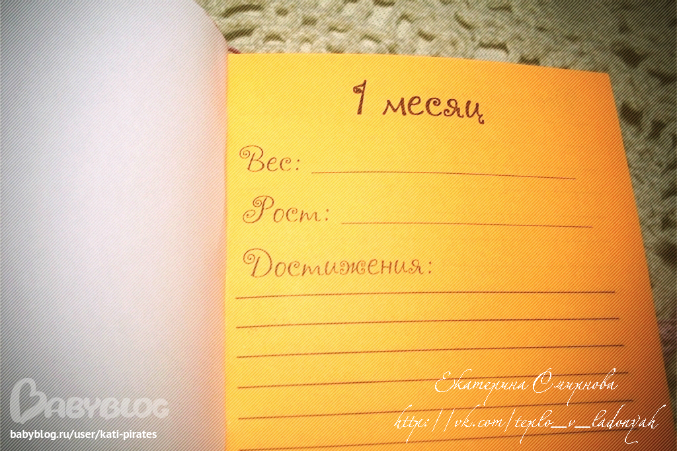 1 месяц
Вес:
Рост:
Достижения:
Екатерина Смирнова
http://vk.com/teplo_v_ladonyah
BABYBLOG
babyblog.ru/user/kati-pirates